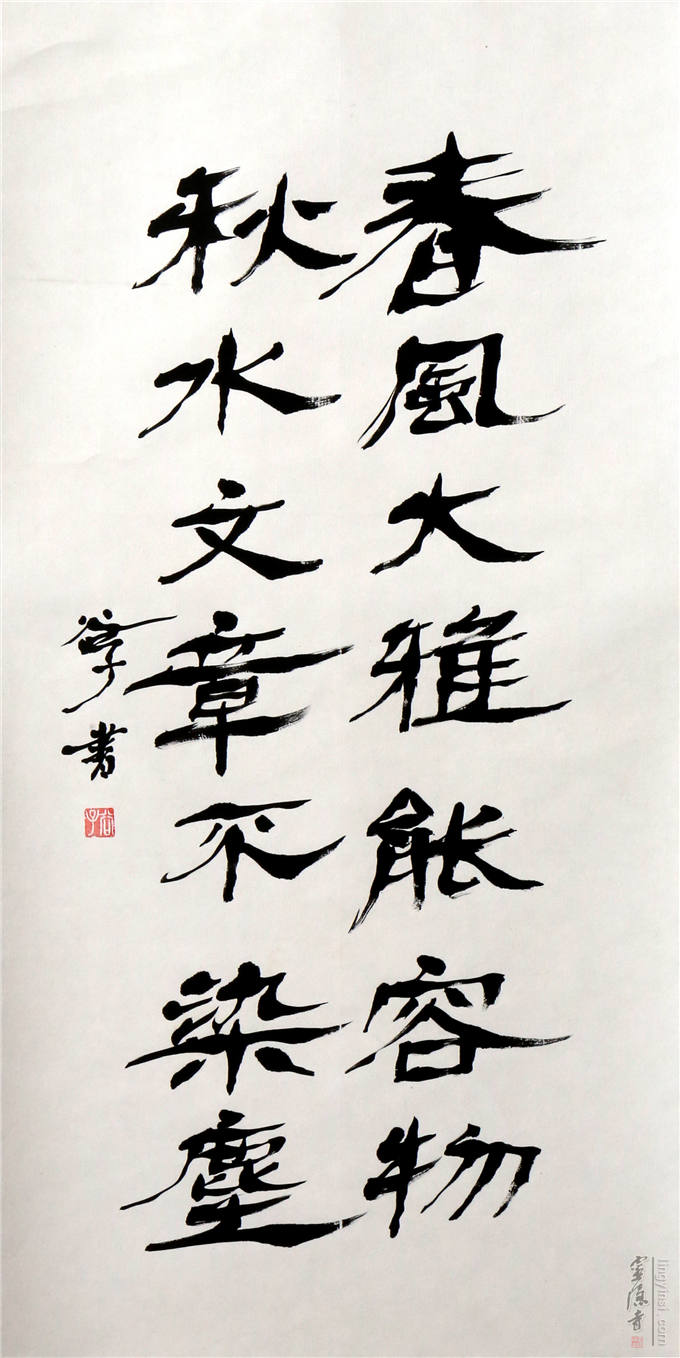 春風大雅能容物
秋水文章不染塵
谷子書
谷子
lingyinsi.com